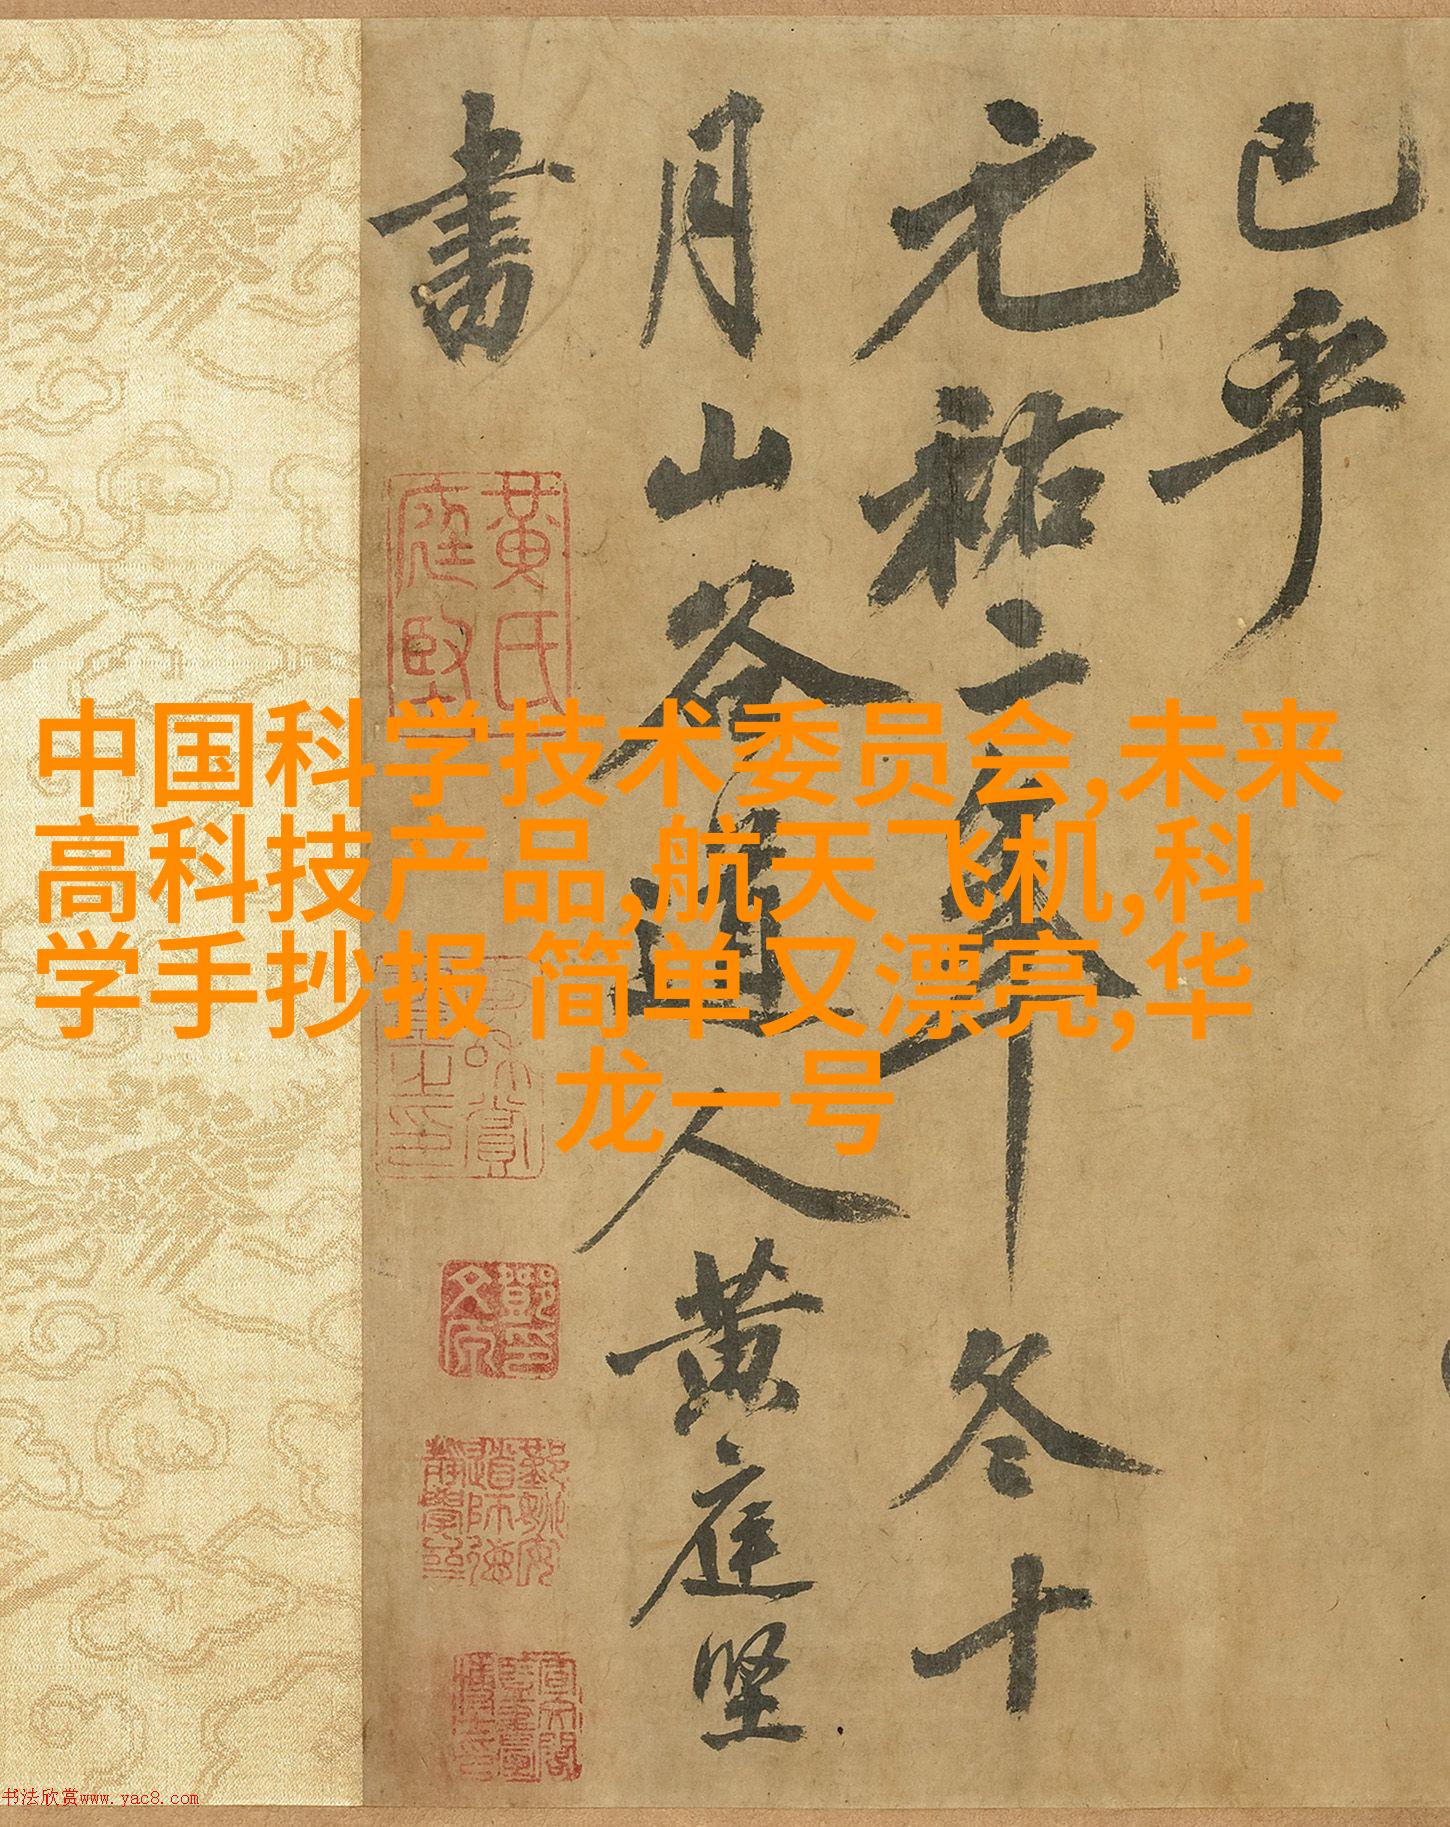 已乎
元祐二年冬十
月山谷道人黄庭坚
書
黄氏
庭堅
中国科学技术委员会,未来
高科技产品,航天飞机,科
学手抄报 简单又漂亮,华
龙一号
书法欣赏www.yac8.com